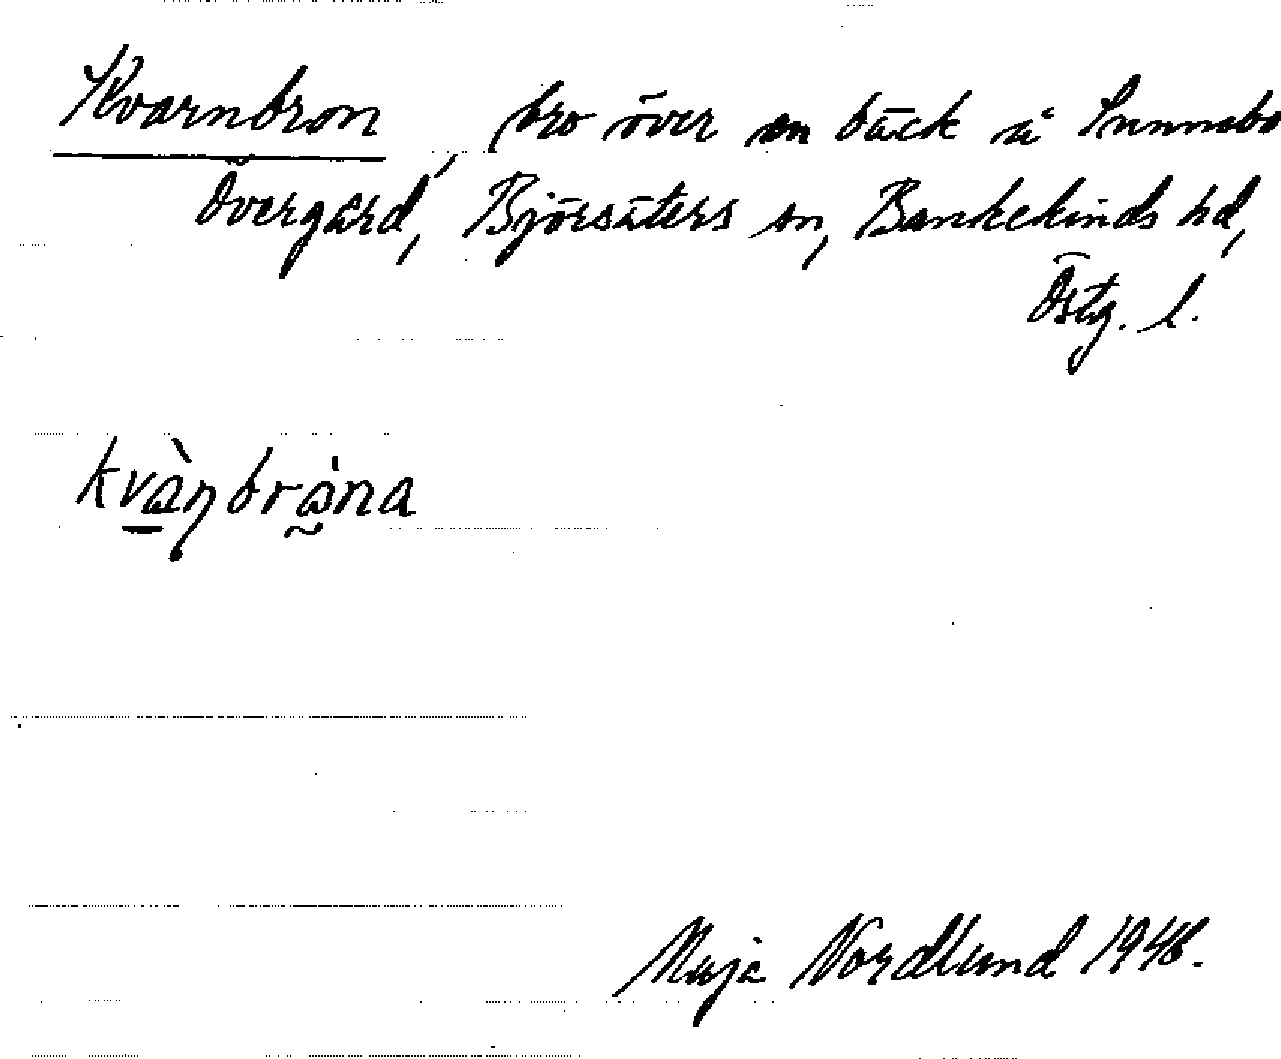 Kvarnbron, bro över en bäck å Sunnebo
Övergård, Björsäters sn, Bankekinds hd,
Östg. l.
kvàṇbrὼna
Maja Nordlund 1946.